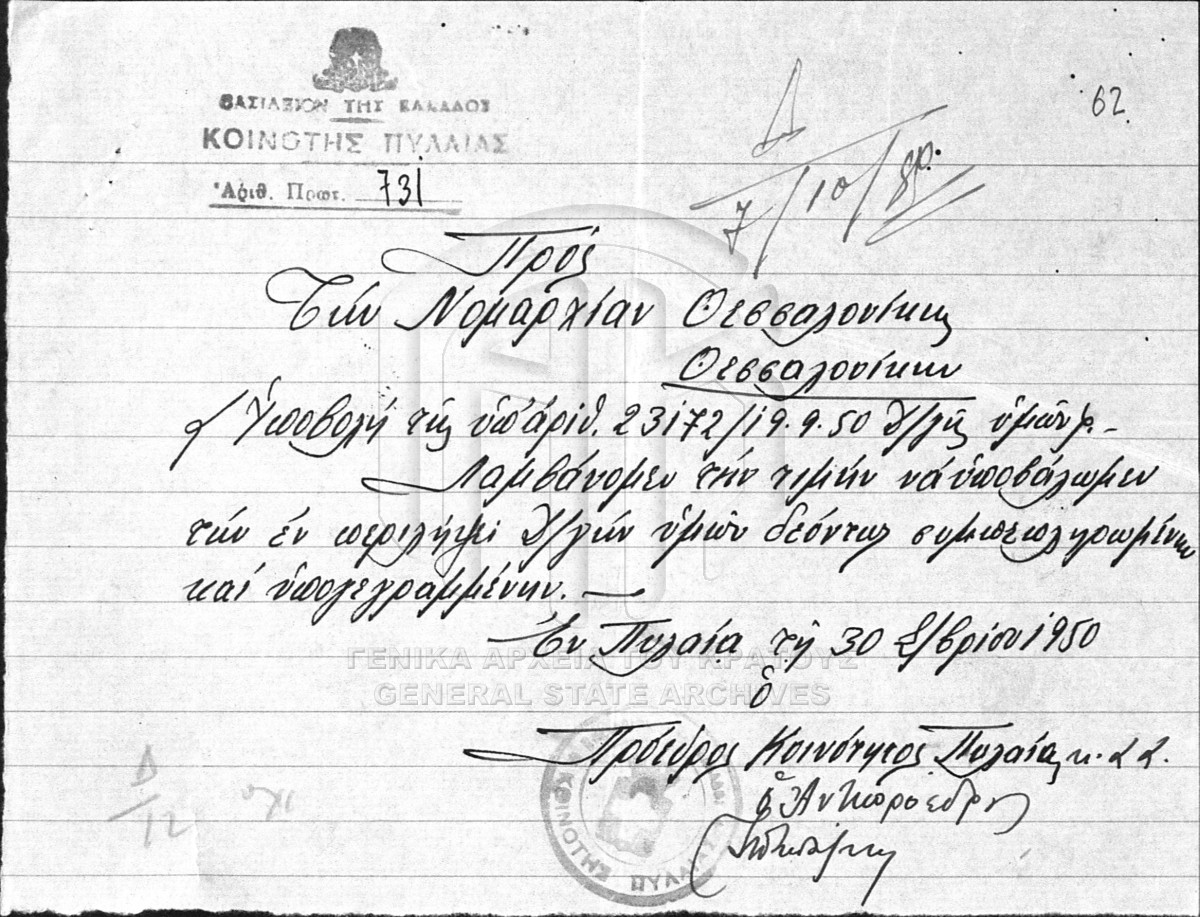 62
ΒΑΣΙΛΕΙΟΝ ΤΗΣ ΕΛΛΑΔΟΣ
ΚΟΙΝΟΤΗΣ ΠΥΛΑΙΑΣ
Ἀριθ. Πρωτ. 731
Δ
7/10/
Πρός
Τήν Νομαρχίαν Θεσσαλονίκης
Θεσσαλονίκην
Ὑποβολή τῆς ὑπ' ἀριθ. 23172/19.9.50 Δ/γῆς ὑμῶν.-
Λαμβάνομεν τήν τιμήν νά ὑποβάλωμεν
τήν ἐν περιλήψει Δ/γήν ὑμῶν δεόντως συμπεπληρωμένην
καί ὑπογεγραμμένην. —
Ἐν Πυλαίᾳ τῇ 30 Σ/βρίου 1950
ὁ
Πρόεδρος Κοινότητος Πυλαίας κ.α.α.
ὁ Αντιπρόεδρος
ΓΕΝΙΚΑ ΑΡΧΕΙΑ ΤΟΥ ΚΡΑΤΟΥΣ
GENERAL STATE ARCHIVES
ΚΟΙΝΟΤΗΣ ΠΥΛΑΙΑΣ
Δ/12